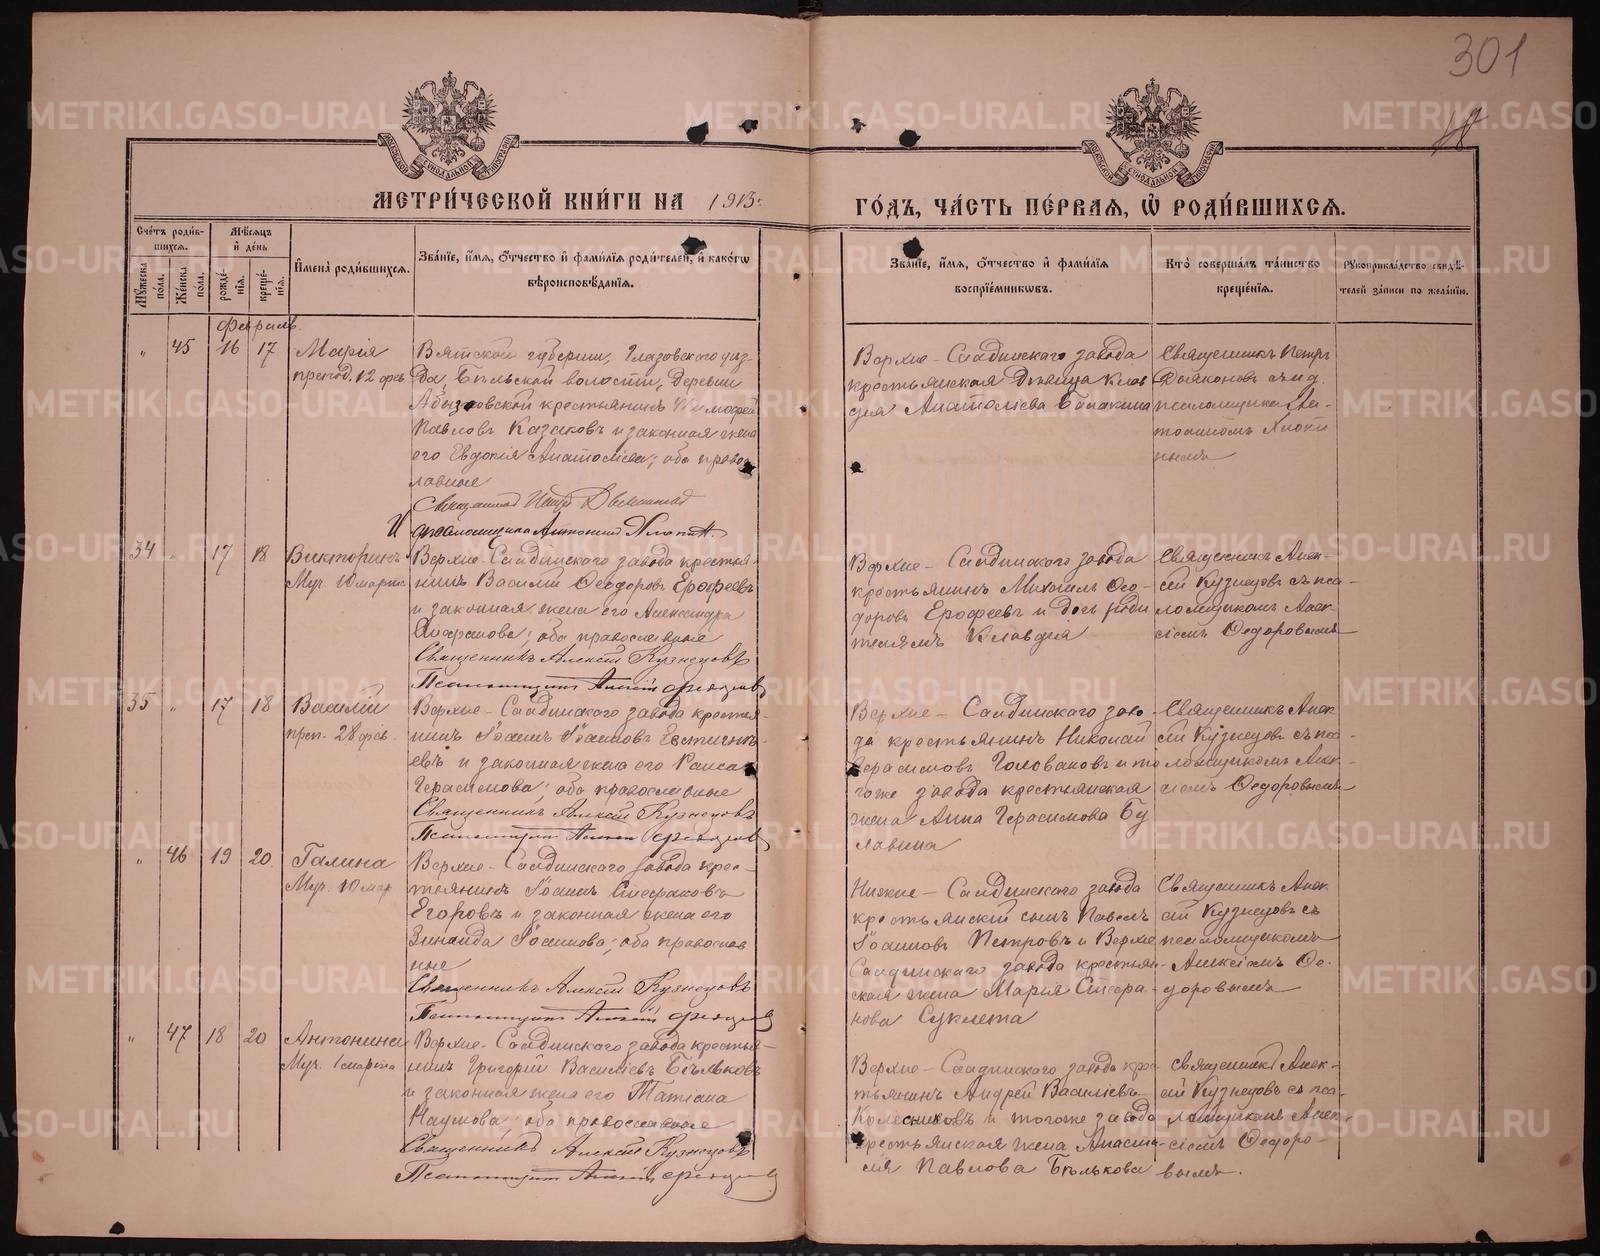 301
МЕТРИ́ЧЕСКОЙ КНИ́ГИ НА 1913 г.
ГО́ДЪ, ЧА́СТЬ ПЕ́РВАЯ, Ѡ҆ РОДИ́ВШИХСЯ.
Сче́тъ роди́вшихся.
Мѣ́сяцъ и҆ де́нь
Мꙋ́жеска по́ла.
Же́нска по́ла.
рожде́нїѧ.
креще́нїѧ.
И҆мена̀ роди́вшихся.
Зва́нїе, и҆́мѧ, ѻ҆́тчество и҆ фами́лїѧ роди́телей, и҆ како́гѡ
вѣроисповѣ́данїѧ.
Зва́нїе, и҆́мѧ, ѻ҆́тчество и҆ фами́лїѧ
воспрїе́мникѡвъ.
Кто̀ соверша́лъ та́инство
креще́нїѧ.
Рꙋкоприкла́дство свидѣ́-
телей за́писи по жела́нїю.
Февраль
" 45 16 17 Марія
препод. 12 фев
Вятской губерніи, Глазовскаго уѣз-
да, Бѣльской волости, деревни
Абызовской крестьянинъ Тимофей
Павловъ Казаковъ и законная жена
его Евдокія Анатоліева; оба право
славные
Священник Петръ Дьяконов
И псаломщика Антоний
Верхне-Салдинскаго завода
крестьянская дѣвица Клав
дія Анатоліева
Священникъ Петръ
Дьяконовъ съ и. д.
псаломщика Ан-
тониемъ
34 " 17 18 Викторинъ
Муч. 10 марта
Верхне-Салдинскаго завода крестья-
нинъ Василій Ѳеодоровъ Ерофеевъ
и законная жена его Александра
оба православные
Священникъ Алексій Кузнецовъ
Псаломщикъ Алексій Ѳедоровъ
Верхне-Салдинскаго завода
крестьянинъ Михаилъ Ѳео
доровъ Ерофеевъ и дочь роди
телямъ Клавдія
Священникъ Алек-
сій Кузнецовъ съ пса-
ломщикомъ Алек-
сіемъ Ѳедоровымъ
35 " 17 18 Василій
преп. 28 фев.
Верхне-Салдинскаго завода крестья-
нинъ Іоаннъ Іоанновъ Евстигнѣ-
евъ и законная жена его Раиса
Герасимова; оба православные
Священникъ Алексій Кузнецовъ
Псаломщикъ Алексій Ѳедоровъ
Верхне-Салдинскаго заво-
да крестьянинъ Николай
Герасимовъ Головановъ и то
гоже завода крестьянская
жена Анна Герасимова Бу
лавина
Священникъ Алек-
сій Кузнецовъ съ пса-
ломщикомъ Алек-
сіемъ Ѳедоровымъ
" 46 19 20 Галина
Муч. 10 мар
Верхне-Салдинскаго завода крес-
тьянинъ Іоаннъ Стефановъ
Егоровъ и законная жена его
Зинаида Іоаннова; оба православ
ные
Священникъ Алексій Кузнецовъ
Псаломщикъ Алексій Ѳедоровъ
Нижне-Салдинскаго завода
крестьянскій сынъ Павелъ
Іоанновъ Петровъ и Верхне
Салдинскаго завода крестьян-
ская жена Марія Стефа-
нова
Священникъ Алек
сій Кузнецовъ съ
псаломщикомъ
Алексіемъ Ѳе-
доровымъ
" 47 18 20 Антонина
Муч. 1 марта
Верхне-Салдинскаго завода крестья-
нинъ Григорій Василіевъ Бѣльковъ
и законная жена его Татіана
Наумова; оба православные
Священникъ Алексій Кузнецовъ
Псаломщикъ Алексій Ѳедоровъ
Верхне-Салдинскаго завода крес-
тьянинъ Андрей Василіевъ
Колесниковъ и тогоже завода
крестьянская жена Анаста-
сія Павлова Бѣлькова
Священникъ Алек-
сій Кузнецовъ съ пса-
ломщикомъ Алек-
сіемъ Ѳедоро-
вымъ.
METRIKI.GASO-URAL.RU